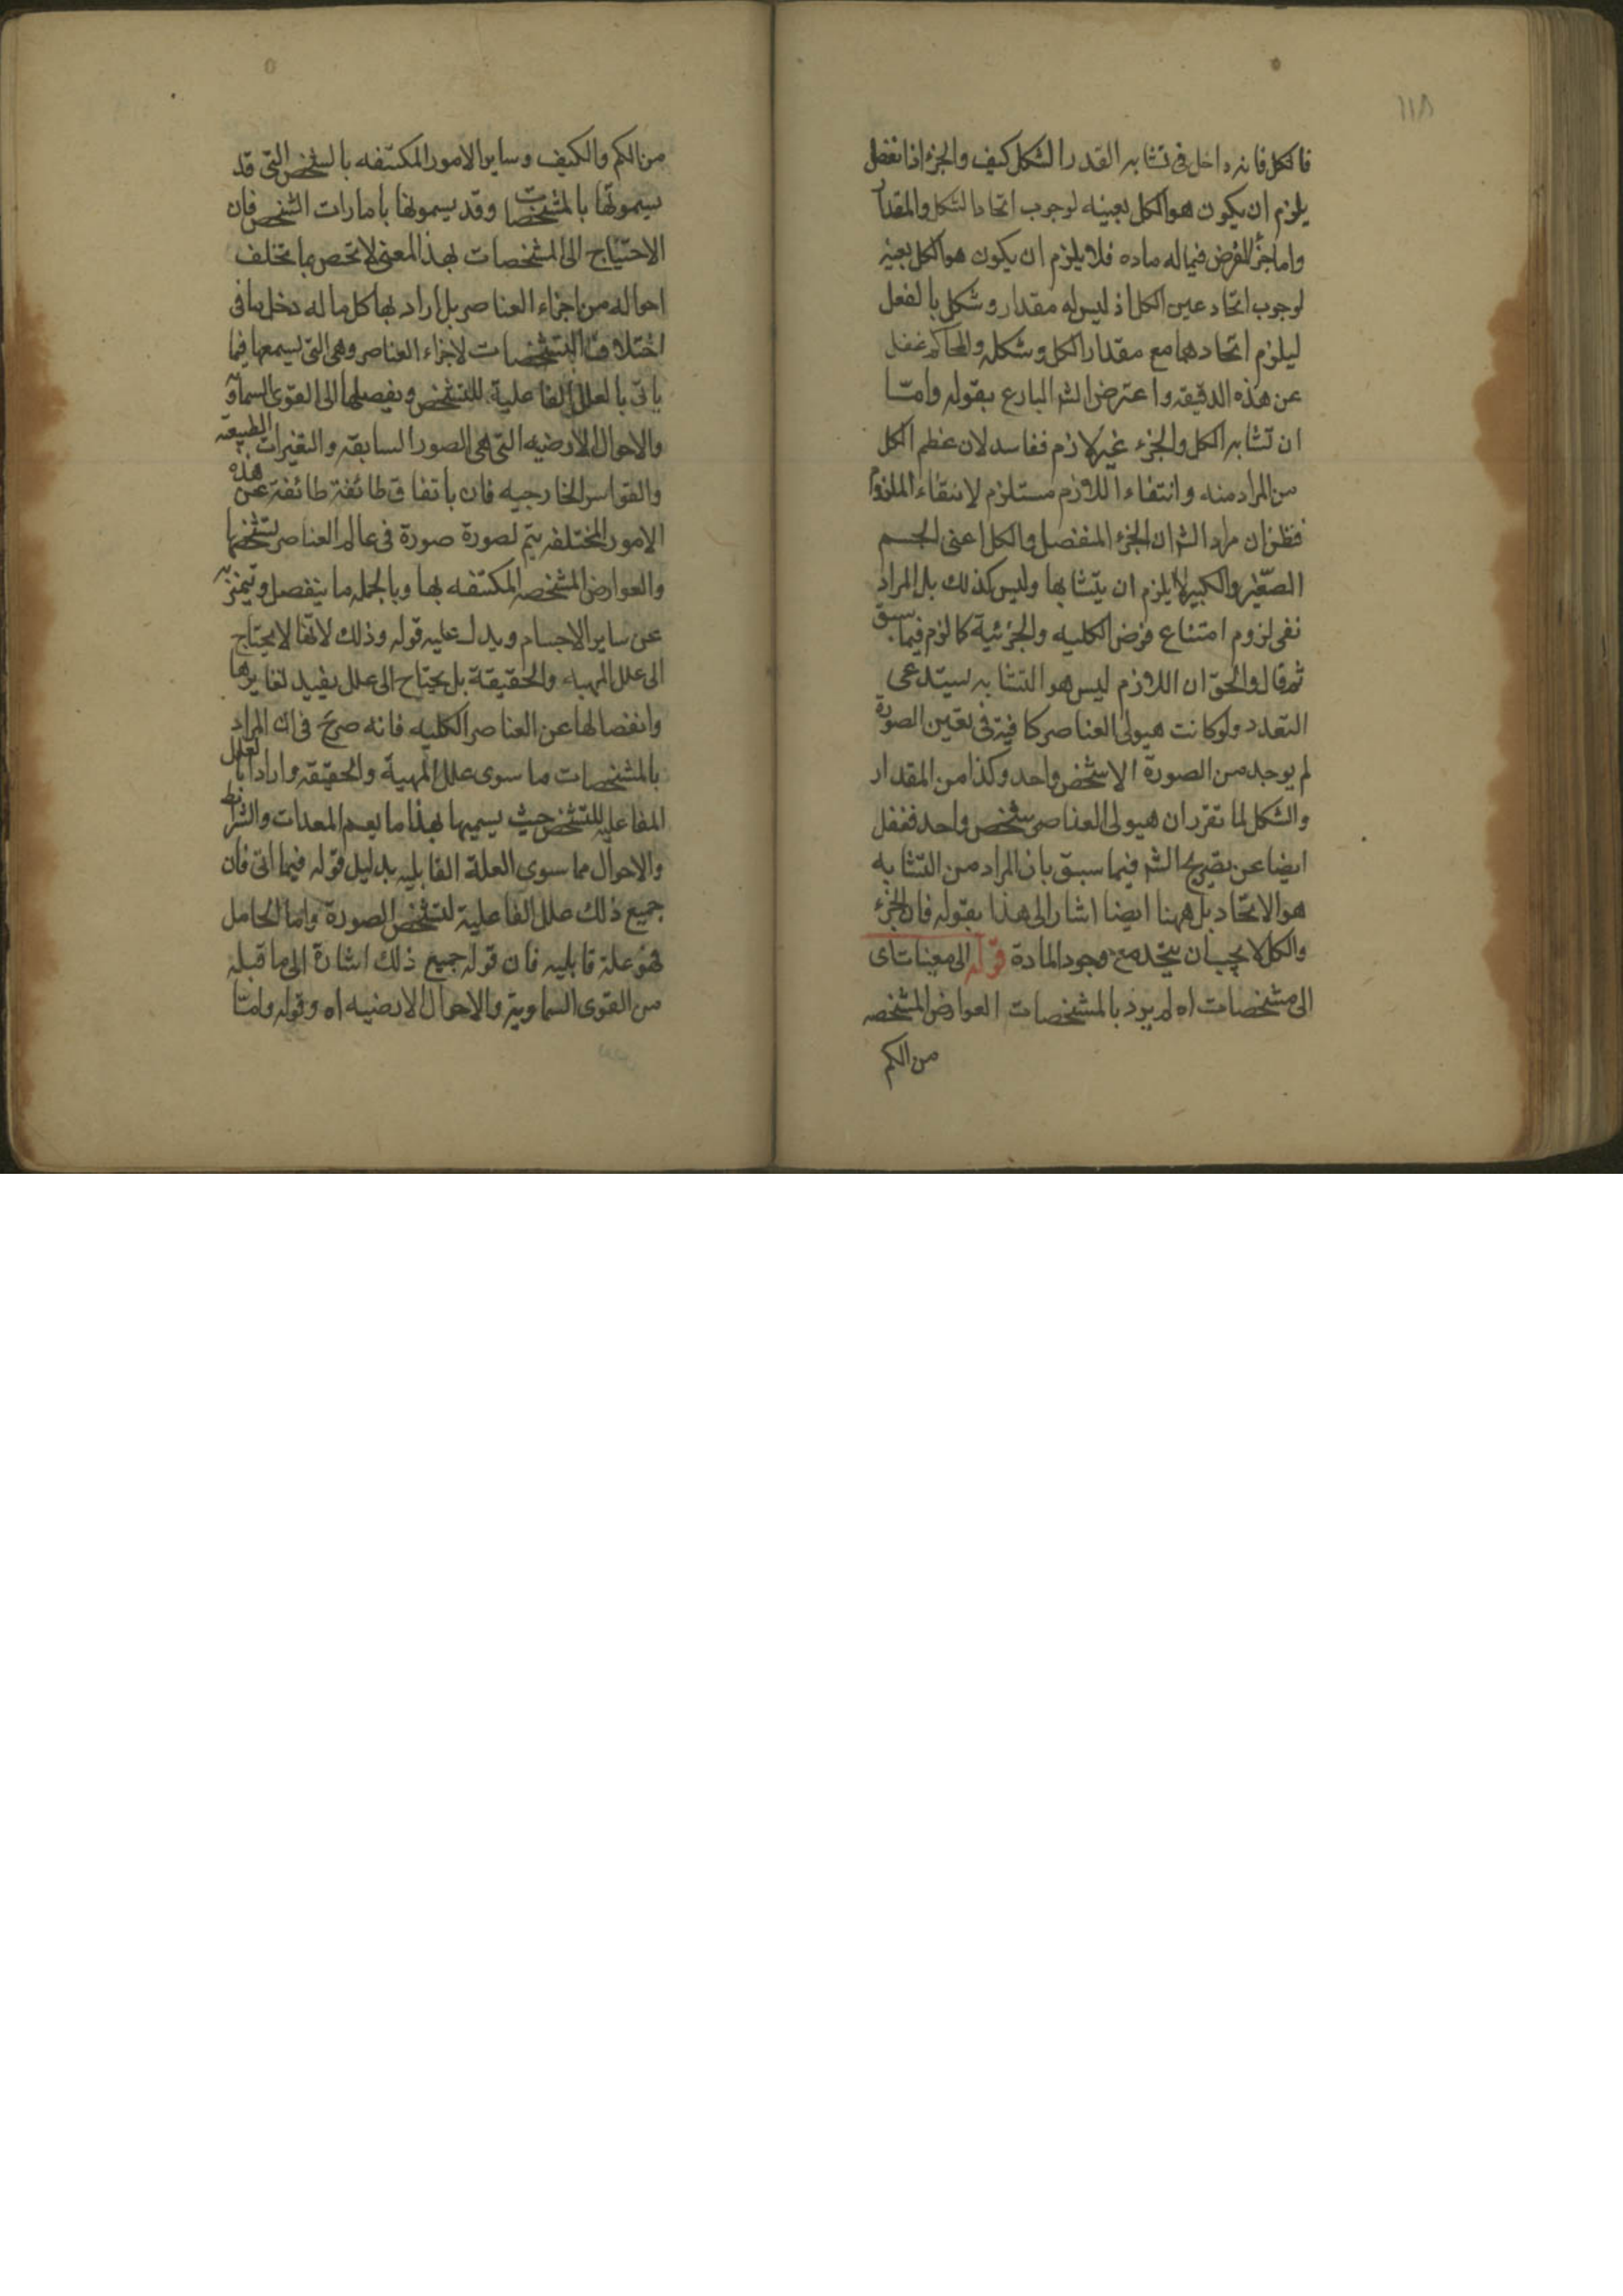 ١١٨
فالكل فانه داخل فى تشابه القدر الشكل كيف والجزء اذا نفصل
يلزم ان يكون هو الكل بعينه لوجوب اتحاد الشكل والمقدار
واما جزء الفرض فيما له ماده فلا يلزم ان يكون هو الكل بعينه
لوجوب اتحاد عين الكل اذ ليس له مقدار و شكل بالفعل
ليلزم اتحادهما مع مقدار الكل وشكله والمحاكم غفل
عن هذه الدقيقه واعترض الشه البارع بقوله وامّا
ان تشابه الكل والجزء غير لازم ففاسد لان عظم الكل
من المراد منه وانتفاء اللازم مستلزم لانتفاء الملزوم
فظن ان مراد الشه ان الجزء المنفصل والكل اعنى الجسم
الصّغير والكبير لا يلزم ان يتشابها وليس كذلك بل المراد
نفى لزوم امتناع فرض الكليه والجزئية كما لزم فيما سبق
ثم قال والحقّ ان اللازم ليس هو التشابه يستدعى
التعدد ولو كانت هيولى العناصر كافية فى تعين الصورة
لم يوجد من الصورة الا شخص واحد وكذا من المقدار
والشكل لما تقرر ان هيولى العناصر شخص واحد فغفل
ايضا عن تصريح الشه فيما سبق بان المراد من التشابه
هو الاتحاد بل ههنا ايضا اشار الى هذا بقوله فان الجزء
والكل لا يجب ان يتحد مع وجود المادة قوله الى معينات اى
الى مشخصات اه لم يرد بالمشخصات العوارض المشخصه
من الكم
من الكم والكيف وساير الامور المكتنفه بالشخص التى قد
يسمونها بالمشخصات وقد يسمونها بامارات الشخص فان
الاحتياج الى المشخصات بهذا المعنى لا تخص بما تخلف
احواله من اجزاء العناصر بل اراد بها كل ما له دخل ما فى
اختلاف التشخصات لاجزاء العناصر وهى التى يسميها فيما
ياتى بالعلل الفاعلية للتشخص ويفصلها الى القوى السماويه
والاحوال الارضيه التى هى الصور السابقه والتغيرات الطبيعيه
والقواسر الخارجيه فان باتفاق طائفة طائفة عن هذه
الامور المختلفه يتم لصورة صورة فى عالم العناصر تشخصها
والعوارض المشخصه المكتنفه بها وبالجمله ما ينفصل ويتميز به
عن ساير الاجسام ويدل عليه قوله وذلك لانها لا يحتاج
الى علل المهياء والحقيقة بل يحتاج الى علل يفيد تغايرها
وانفصالها عن العناصر الكليه فانه صريح فى ان المراد
بالمشخصات ما سوى علل المهية والحقيقه واراد بالعلل
الفاعليه للتشخص حيث يسميها بهذا ما يعم المعدات والشرائط
والاحوال مما سوى العلة القابليه بدليل قوله فيما اتى فان
جميع ذلك علل الفاعلية لتشخص الصورة واما الحامل
فهو علة قابليه فان قوله جميع ذلك اشارة الى ما قبله
من القوى السماوية والاحوال الارضيه اه وقوله وامّا